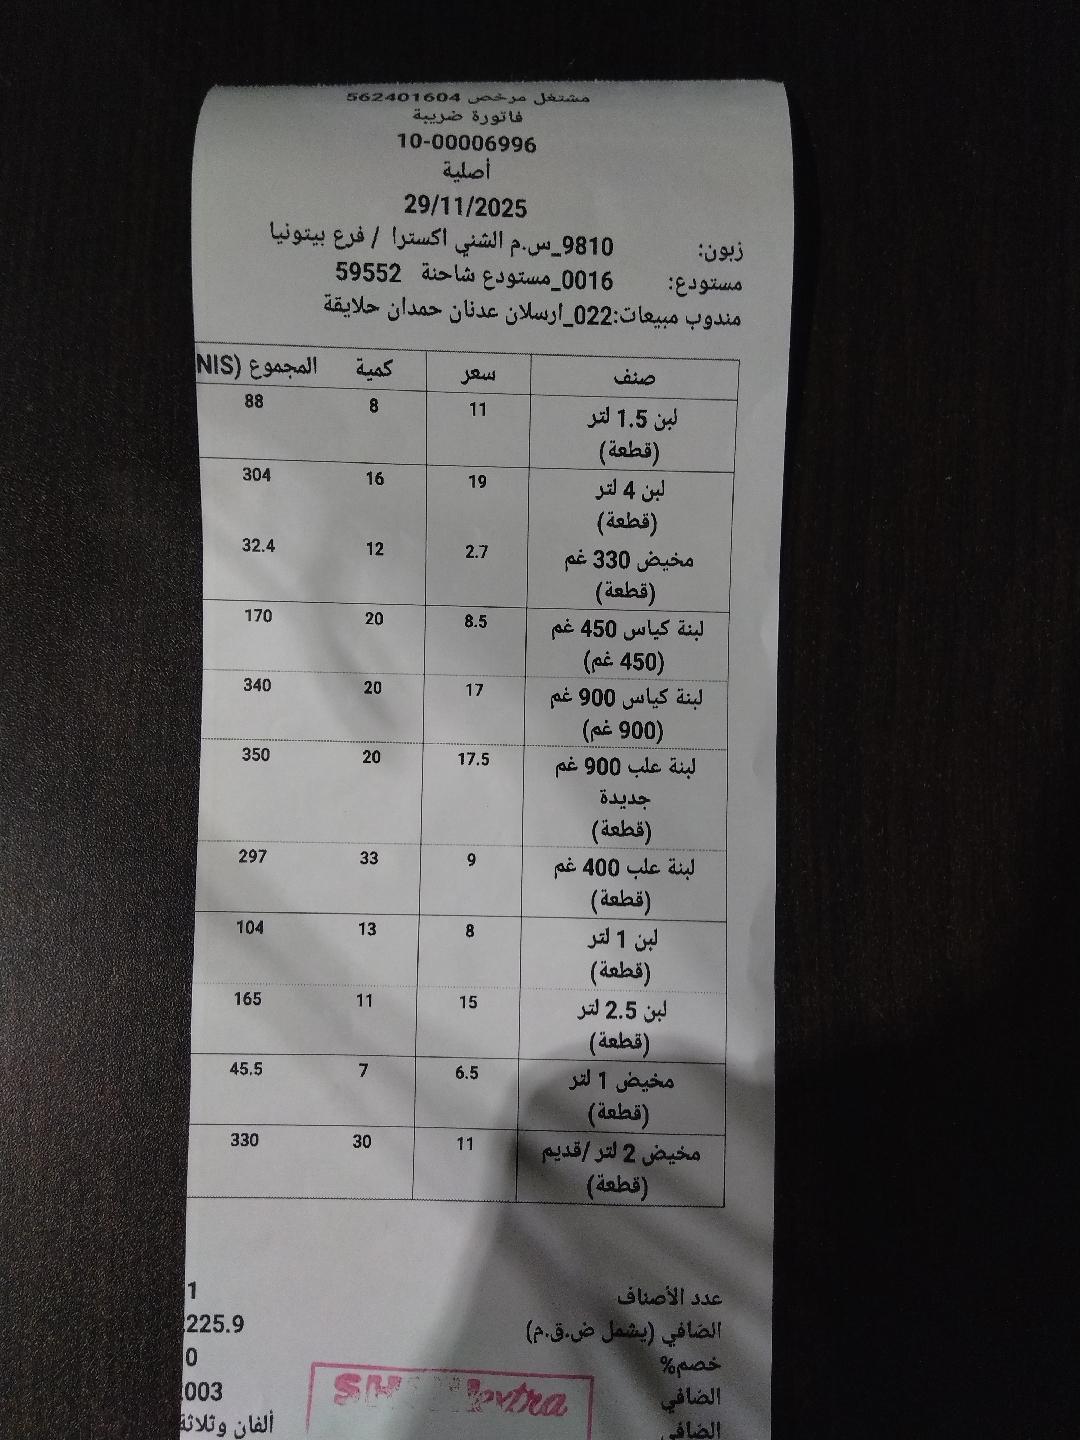 مشتغل مرخص 562401604
فاتورة ضريبة
10-00006996
أصلية
29/11/2025
زبون: 9810_س.م الشني اكسترا / فرع بيتونيا
مستودع: 0016_مستودع شاحنة 59552
مندوب مبيعات:022_ارسلان عدنان حمدان حلايقة
صنف سعر كمية المجموع (NIS
لبن 1.5 لتر 11 8 88
(قطعة)
لبن 4 لتر 19 16 304
(قطعة)
مخيض 330 غم 2.7 12 32.4
(قطعة)
لبنة كياس 450 غم 8.5 20 170
(450 غم)
لبنة كياس 900 غم 17 20 340
(900 غم)
لبنة علب 900 غم 17.5 20 350
جديدة
(قطعة)
لبنة علب 400 غم 9 33 297
(قطعة)
لبن 1 لتر 8 13 104
(قطعة)
لبن 2.5 لتر 15 11 165
(قطعة)
مخيض 1 لتر 6.5 7 45.5
(قطعة)
مخيض 2 لتر /قديم 11 30 330
(قطعة)
عدد الأصناف 1
الصافي (يشمل ض.ق.م) 225.9
خصم% 0
الصافي 003
الصافي ألفان وثلاثة
extra